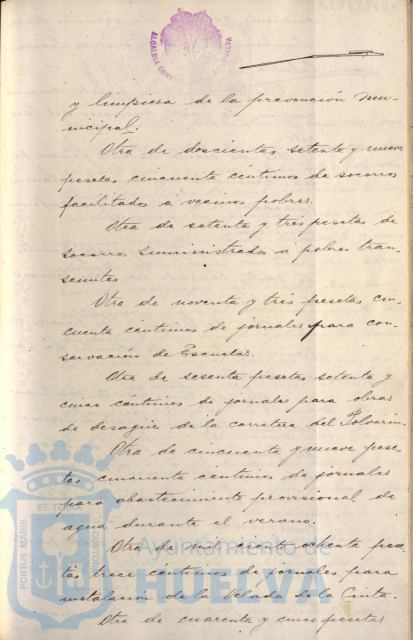 y limpieza de la prevención mu-
nicipal.
Otra de doscientas setenta y nueve
pesetas cincuenta céntimos de socorros
facilitados a vecinos pobres.
Otra de setenta y tres pesetas de
socorros suministrados a pobres tran-
seuntes.
Otra de noventa y tres pesetas cin-
cuenta céntimos de jornales para con-
servación de Escuelas.
Otra de sesenta pesetas setenta y
cinco céntimos de jornales para obras
de desagüe de la carretera del Polvorín.
Otra de cincuenta y nueve pese-
tas cincuenta céntimos de jornales
para abastecimiento provisional de
agua durante el verano.
Otra de ochenta pese-
tas trece céntimos de jornales para
instalación de la Velada de la Cinta.
Otra de cuarenta y cinco pesetas
Ayuntamiento de
HUELVA
PORTUS MARIS
ET TERRAE
CUSTODIA
ALCALDIA